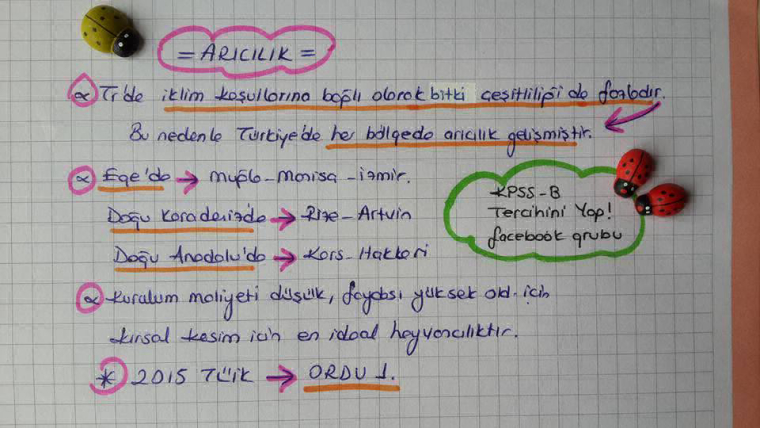 = ARICILIK =
∝ Tr'de iklim koşullarına bağlı olarak bitki çeşitliliği de fazladır.
Bu nedenle Türkiye'de her bölgede arıcılık gelişmiştir.
∝ Ege'de → Muğla - Manisa - İzmir.
Doğu Karadeniz'de → Rize - Artvin
Doğu Anadolu'da → Kars - Hakkari
KPSS-B
Tercihini Yap!
facebook grubu
∝ Kurulum maliyeti düşük, faydası yüksek old. için
kırsal kesim için en ideal hayvancılıktır.
* 2015 TÜİK → ORDU 1.